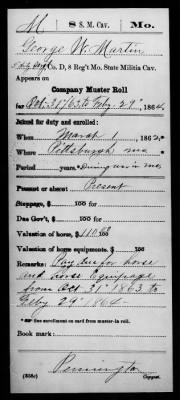 M 8 S. M. Cav. Mo.
George W. Martin
Co. D, 8 Reg't Mo. State Militia Cav.
Appears on
Company Muster Roll
for Oct. 31, 1863 to Feby. 29", 1864.
Joined for duty and enrolled:
When March 1, 1862.
Where Pittsburgh Mo
Period years. During war in Mo.
Present or absent Present
Stoppage, $ 100 for
Due Gov't, $ 100 for
Valuation of horse, $ 110.00
Valuation of horse equipments, $ 100
Remarks: Pay due for horse
and horse Equipage
from Oct 31" 1863 to
Feby 29" 1864
*See enrollment on card from muster-in roll.
Book mark:
Pennington
(358c) Copyist.